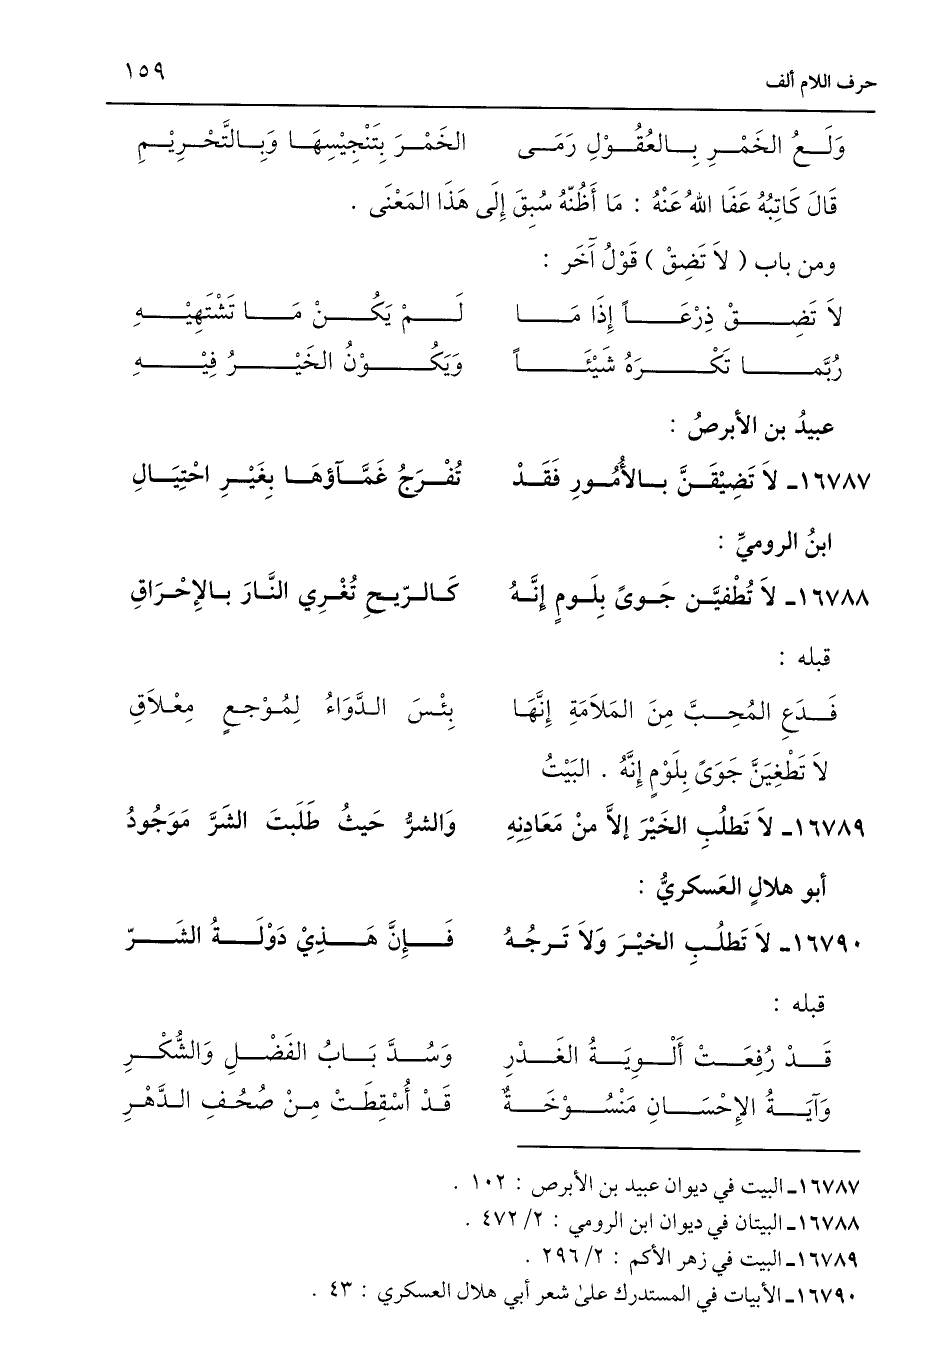 حرف اللام ألف ١٥٩
وَلَعُ الخَمْرِ بِالعُقُوْلِ رَمَى الخَمْرَ بِتَنْجِيْسِهَا وَبِالتَّحْرِيْمِ
قَالَ كَاتِبُهُ عَفَا اللهُ عَنْهُ : مَا أَظُنّهُ سُبِقَ إِلَى هَذَا المَعْنَى .
ومن باب ( لاَ تَضِقْ ) قَوْلُ آخَر :
لاَ تَضِقْ ذِرْعَاً إِذَا مَا لَمْ يَكُنْ مَا تَشْتَهِيْهِ
رُبَّمَا تَكْرَهُ شَيْئَاً وَيَكُوْنُ الخَيْرُ فِيْهِ
عبيدُ بن الأبرصُ :
١٦٧٨٧ـ لاَ تَضِيْقَنَّ بِالأُمُورِ فَقَدْ تُفْرَجُ غَمَّاؤهَا بِغَيْرِ احْتِيَالِ
ابنُ الروميِّ :
١٦٧٨٨ـ لاَ تُطْفيَّن جَوىً بِلَومٍ إِنَّهُ كَالرّيحِ تُغْرِي النَّارَ بالإِحْرَاقِ
قبله :
فَدَعِ المُحِبَّ مِنَ المَلاَمَةِ إِنَّهَا بِئْسَ الدَّوَاءُ لِمُوْجعٍ مِعْلاَقِ
لاَ تَطْغِيَنَّ جَوَىً بِلَوْمٍ إِنَّهُ . البَيْتُ
١٦٧٨٩ـ لاَ تَطلُبِ الخَيْرَ إلاَّ منْ مَعَادِنِهِ وَالشرُّ حَيثُ طَلَبتَ الشَرَّ مَوَجُودُ
أبو هلالٍ العَسكريُّ :
١٦٧٩٠ـ لاَ تَطلُبِ الخيْرَ وَلاَ تَرجُهُ فَإِنَّ هَذِيْ دَوْلَةُ الشَرّ
قبله :
قَدْ رُفِعَتْ أَلْوِيَةُ الغَدْرِ وَسُدَّ بَابُ الفَضْلِ وَالشُّكْرِ
وَآيَةُ الإِحْسَانِ مَنْسُوْخَةٌ قَدْ أُسْقِطَتْ مِنْ صُحُفِ الدَّهْرِ
١٦٧٨٧ـ البيت في ديوان عبيد بن الأبرص : ١٠٢ .
١٦٧٨٨ـ البيتان في ديوان ابن الرومي : ٢/ ٤٧٢ .
١٦٧٨٩ـ البيت في زهر الأكم : ٢/ ٢٩٦ .
١٦٧٩٠ـ الأبيات في المستدرك على شعر أبي هلال العسكري : ٤٣ .